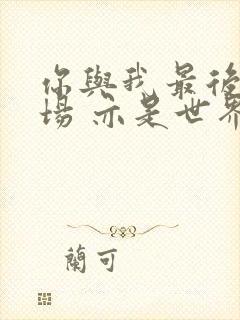 你與我 最後
場 亦是世界
蘭可